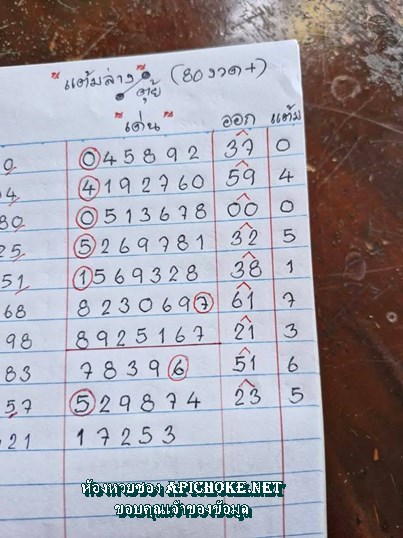 "แต้มล่าง" (80 งวด+)
ตุ้ย
"เด่น" ออก แต้ม
0 0 4 5 8 9 2 37 0
4 4 1 9 2 7 6 0 59 4
80 0 5 1 3 6 7 8 00 0
25 5 2 6 9 7 8 1 32 5
51 1 5 6 9 3 2 8 38 1
68 8 2 3 0 6 9 7 61 7
98 8 9 2 5 1 6 7 21 3
83 7 8 3 9 6 51 6
57 5 2 9 8 7 4 23 5
21 1 7 2 5 3
ห้องหวยซอง APICHOKE.NET
ขอบคุณเจ้าของข้อมูล